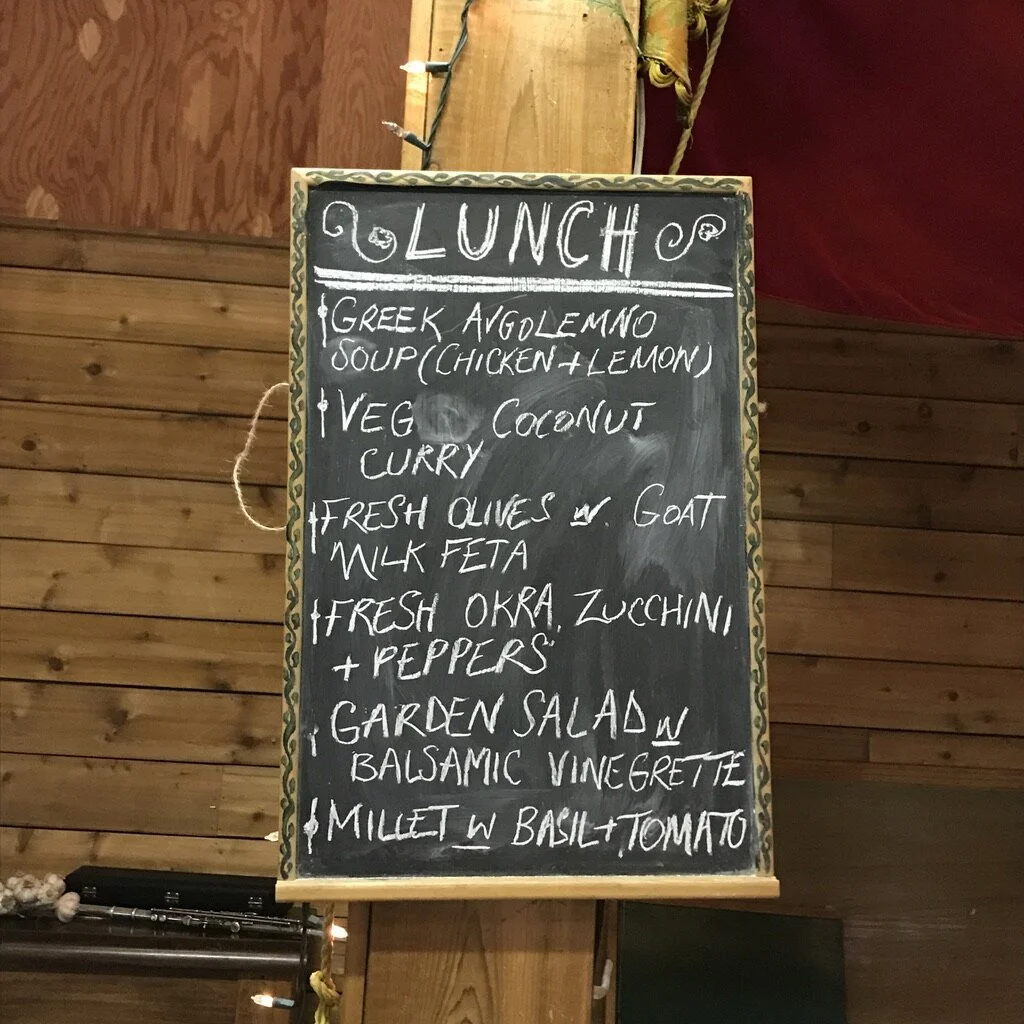 LUNCH
GREEK AVGOLEMNO
SOUP (CHICKEN + LEMON)
VEG COCONUT
CURRY
FRESH OLIVES W. GOAT
MILK FETA
FRESH OKRA, ZUCCHINI
+ PEPPERS
GARDEN SALAD W
BALSAMIC VINEGRETTE
MILLET W BASIL + TOMATO